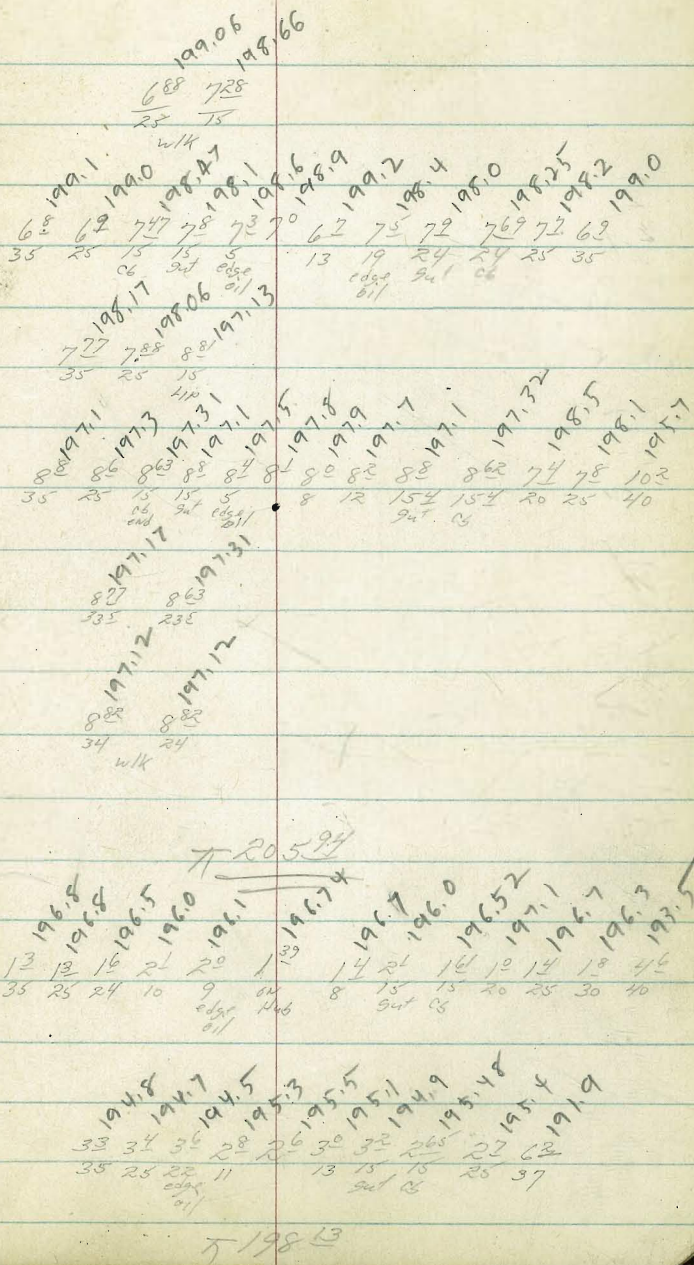 199.06 198.66
6 88 7 28
25 15
wlk
199.1 199.0 198.47 198.1 198.6 198.9 199.2 198.4 198.0 198.25 198.2 199.0
6 8 6 9 7 47 7 8 7 3 7 0 6 7 7 5 7 9 7 69 7 7 6 9
35 25 15 15 5 13 19 24 24 25 35
cb gut edge oil edge oil gut cb
198.17 198.06 197.13
7 77 7 88 8 81
35 25 15
Lip
197.1 197.3 197.31 197.1 197.5 197.8 197.9 197.7 197.1 197.32 198.5 198.1 195.7
8 8 8 6 8 63 8 8 8 4 8 1 8 0 8 2 8 8 8 62 7 4 7 8 10 2
35 25 15 15 5 8 12 154 154 20 25 40
cb end gut edge oil gut cb
197.17 197.31
8 77 8 63
335 235
197.12 197.12
8 82 8 82
34 24
wlk
π 205 94
196.8 196.8 196.5 196.0 196.1 196.74 196.7 196.0 196.52 197.1 196.7 196.3 193.5
1 3 1 3 1 6 2 1 2 0 1 39 1 4 2 1 1 61 1 0 1 4 1 8 4 6
35 25 24 10 9 on Hub 8 15 15 20 25 30 40
edge oil gut cb
194.8 194.7 194.5 195.3 195.5 195.1 194.9 195.48 195.4 191.9
3 3 3 4 3 6 2 8 2 6 3 0 3 2 2 65 2 7 6 2
35 25 22 11 13 15 15 25 37
edge oil gut cb
π 198 13